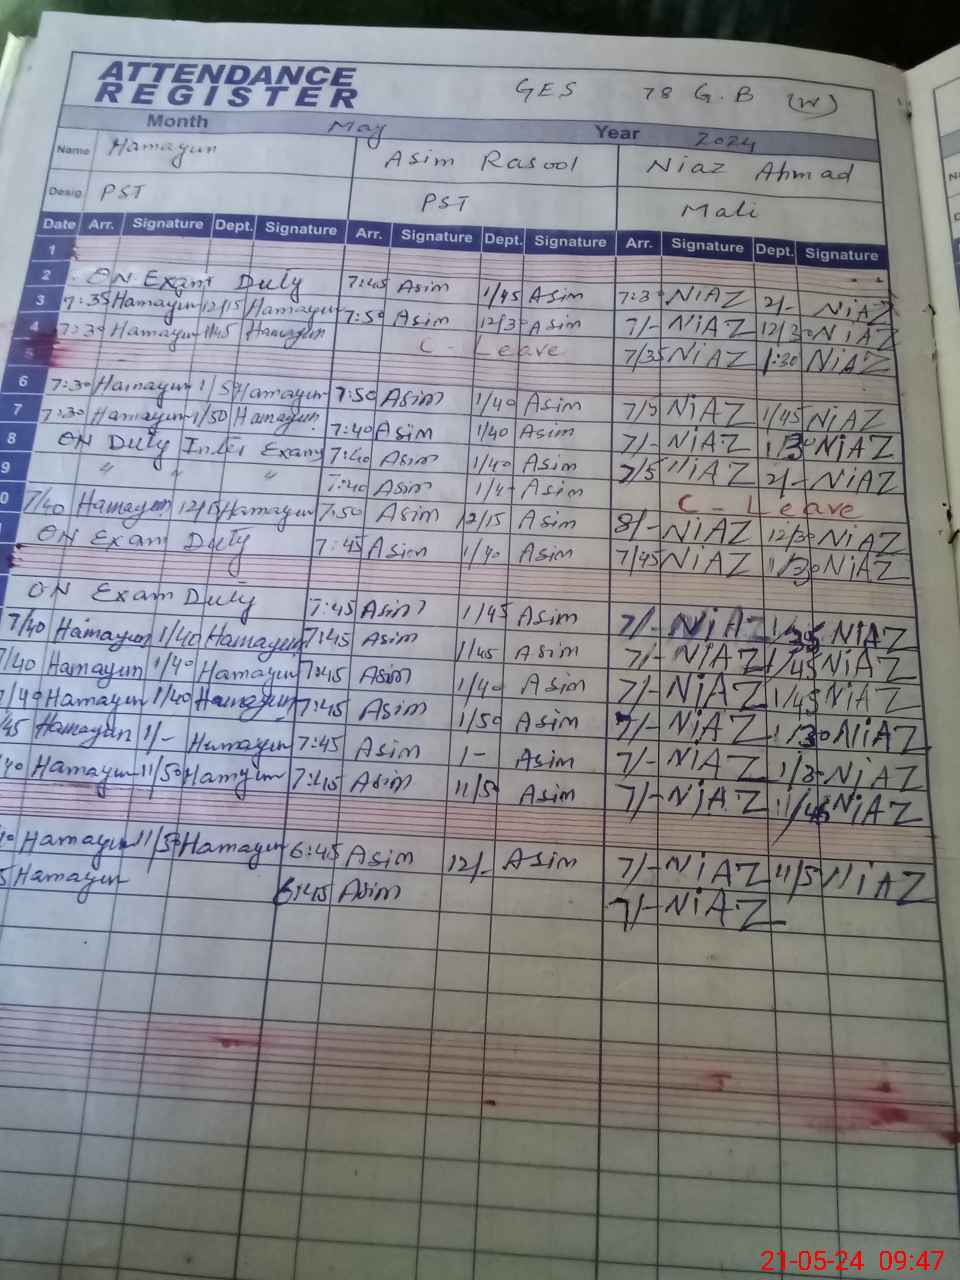 ATTENDANCE
REGISTER
GES 78 G.B (W)
Month May Year 2024
Name Hamayun Asim Rasool Niaz Ahmad
Desig PST PST Mali
Date Arr. Signature Dept. Signature Arr. Signature Dept. Signature Arr. Signature Dept. Signature
1
2 ON Exam Duty 7:45 Asim 1/45 Asim 7:30 NiAZ 2/- NiAZ
3 7:35 Hamayun 12/15 Hamayun 7:50 Asim 12/30 Asim 7/- NiAZ 12/30 NiAZ
4 7:30 Hamayun 11/45 Hamayun C - Leave 7/35 NiAZ 1:30 NiAZ
5
6 7:30 Hamayun 1/50 Hamayun 7:50 Asim 1/40 Asim 7/5 NiAZ 1/45 NiAZ
7 7:30 Hamayun 1/50 Hamayun 7:40 Asim 1/40 Asim 7/- NiAZ 1/30 NiAZ
8 ON Duty Inter Exam 7:40 Asim 1/40 Asim 7/5 NiAZ 2/- NiAZ
9 " " " 7:40 Asim 1/4 Asim C - Leave
0 7/40 Hamayun 12/15 Hamayun 7:50 Asim 12/15 Asim 8/- NiAZ 12/30 NiAZ
ON Exam Duty 7:45 Asim 1/40 Asim 7/45 NiAZ 1/30 NiAZ
ON Exam Duty 7:45 Asim 1/45 Asim 7/- NiAZ 1/35 NiAZ
7/40 Hamayun 1/40 Hamayun 7:45 Asim 1/45 Asim 7/- NiAZ 1/45 NiAZ
7/40 Hamayun 1/40 Hamayun 7:45 Asim 1/40 Asim 7/- NiAZ 1/45 NiAZ
7/40 Hamayun 1/40 Hamayun 7:45 Asim 1/50 Asim 7/- NiAZ 1/30 NiAZ
/45 Hamayun 1/- Hamayun 7:45 Asim 1- Asim 7/- NiAZ 1/30 NiAZ
40 Hamayun 11/50 Hamayun 7:45 Asim 11/50 Asim 7/- NiAZ 11/45 NiAZ
Hamayun 11/50 Hamayun 6:45 Asim 12/- Asim 7/- NiAZ 11/5 NiAZ
5 Hamayun 6:45 Asim 7/- NiAZ
21-05-24 09:47